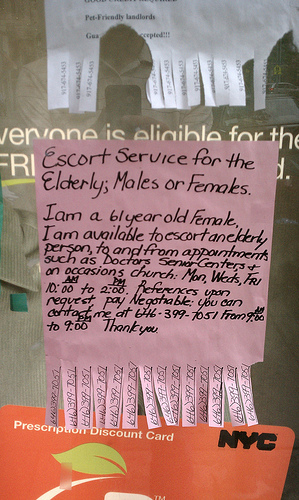 GOOD CREDIT REQUIRED
Pet-Friendly landlords
Gua cepted!!!
veryone is eligible for the
FRI d.
Escort Service for the
Elderly; Males or Females.
I am a 61 year old Female,
I am available to escort an elderly
person, to and from appointments
such as Doctors Senior Centers +
on occasions church: Mon, Weds, Fri
10:00 AM to 2:00 PM. References upon
request pay Negotiable: you can
contact me at 646-399-7051 From 9:00 AM
to 9:00 PM Thank you
646-399-7051
646-399-7051
646-399-7051
646-399-7051
646-399-7051
646-399-7051
646-399-7051
646-399-7051
646-399-7051
646-399-7051
646-399-7051
646-399-7051
Prescription Discount Card
NYC
TM